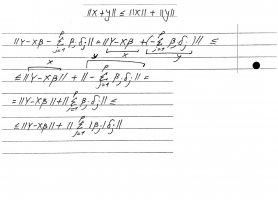 ||x+y|| ≤ ||x|| + ||y||
||Y-Xβ - Σ_{j=1}^{p} β_j δ_j|| = ||Y-Xβ + (-Σ_{j=1}^{p} β_j δ_j)|| ≤
x y
x y
≤ ||Y-Xβ|| + ||-Σ_{j=1}^{p} β_j δ_j|| =
= ||Y-Xβ|| + ||Σ_{j=1}^{p} β_j δ_j|| ≤
≤ ||Y-Xβ|| + ||Σ_{j=1}^{p} |β_j| δ_j||